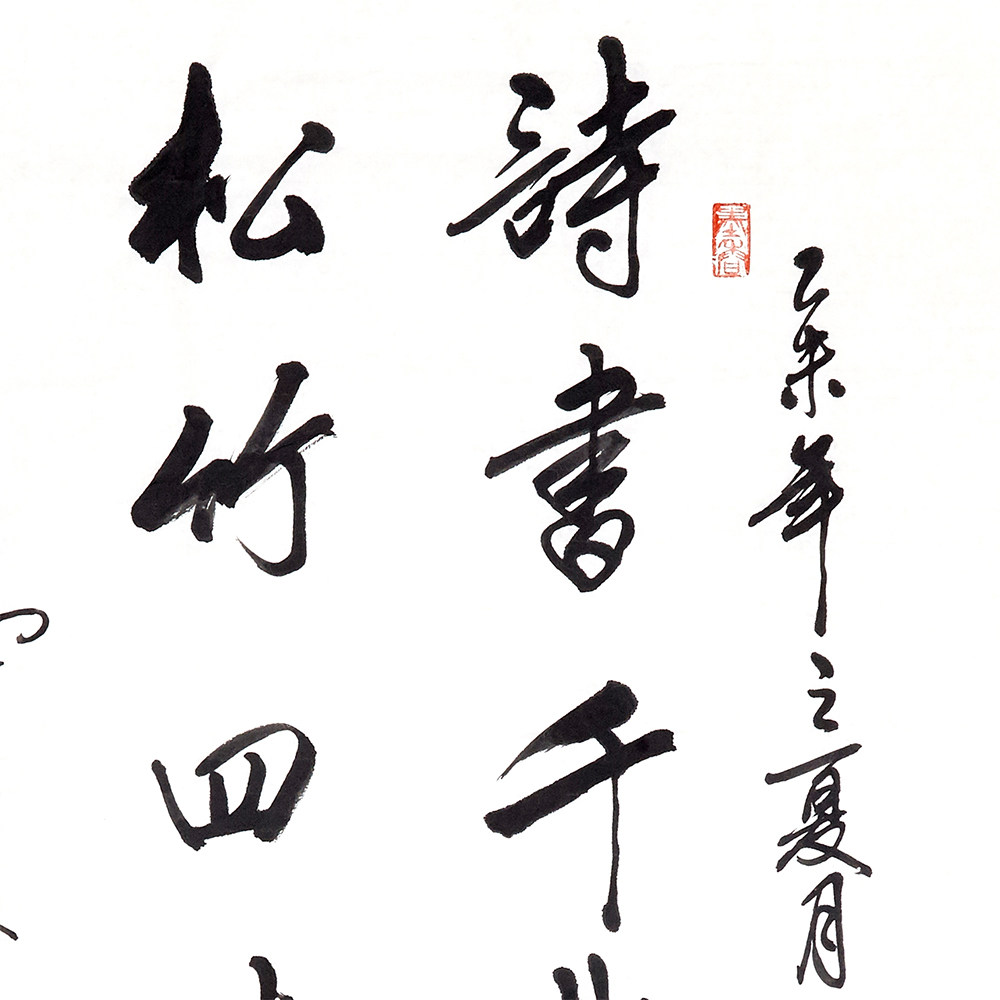 乙未年之夏月
詩書千
松竹四